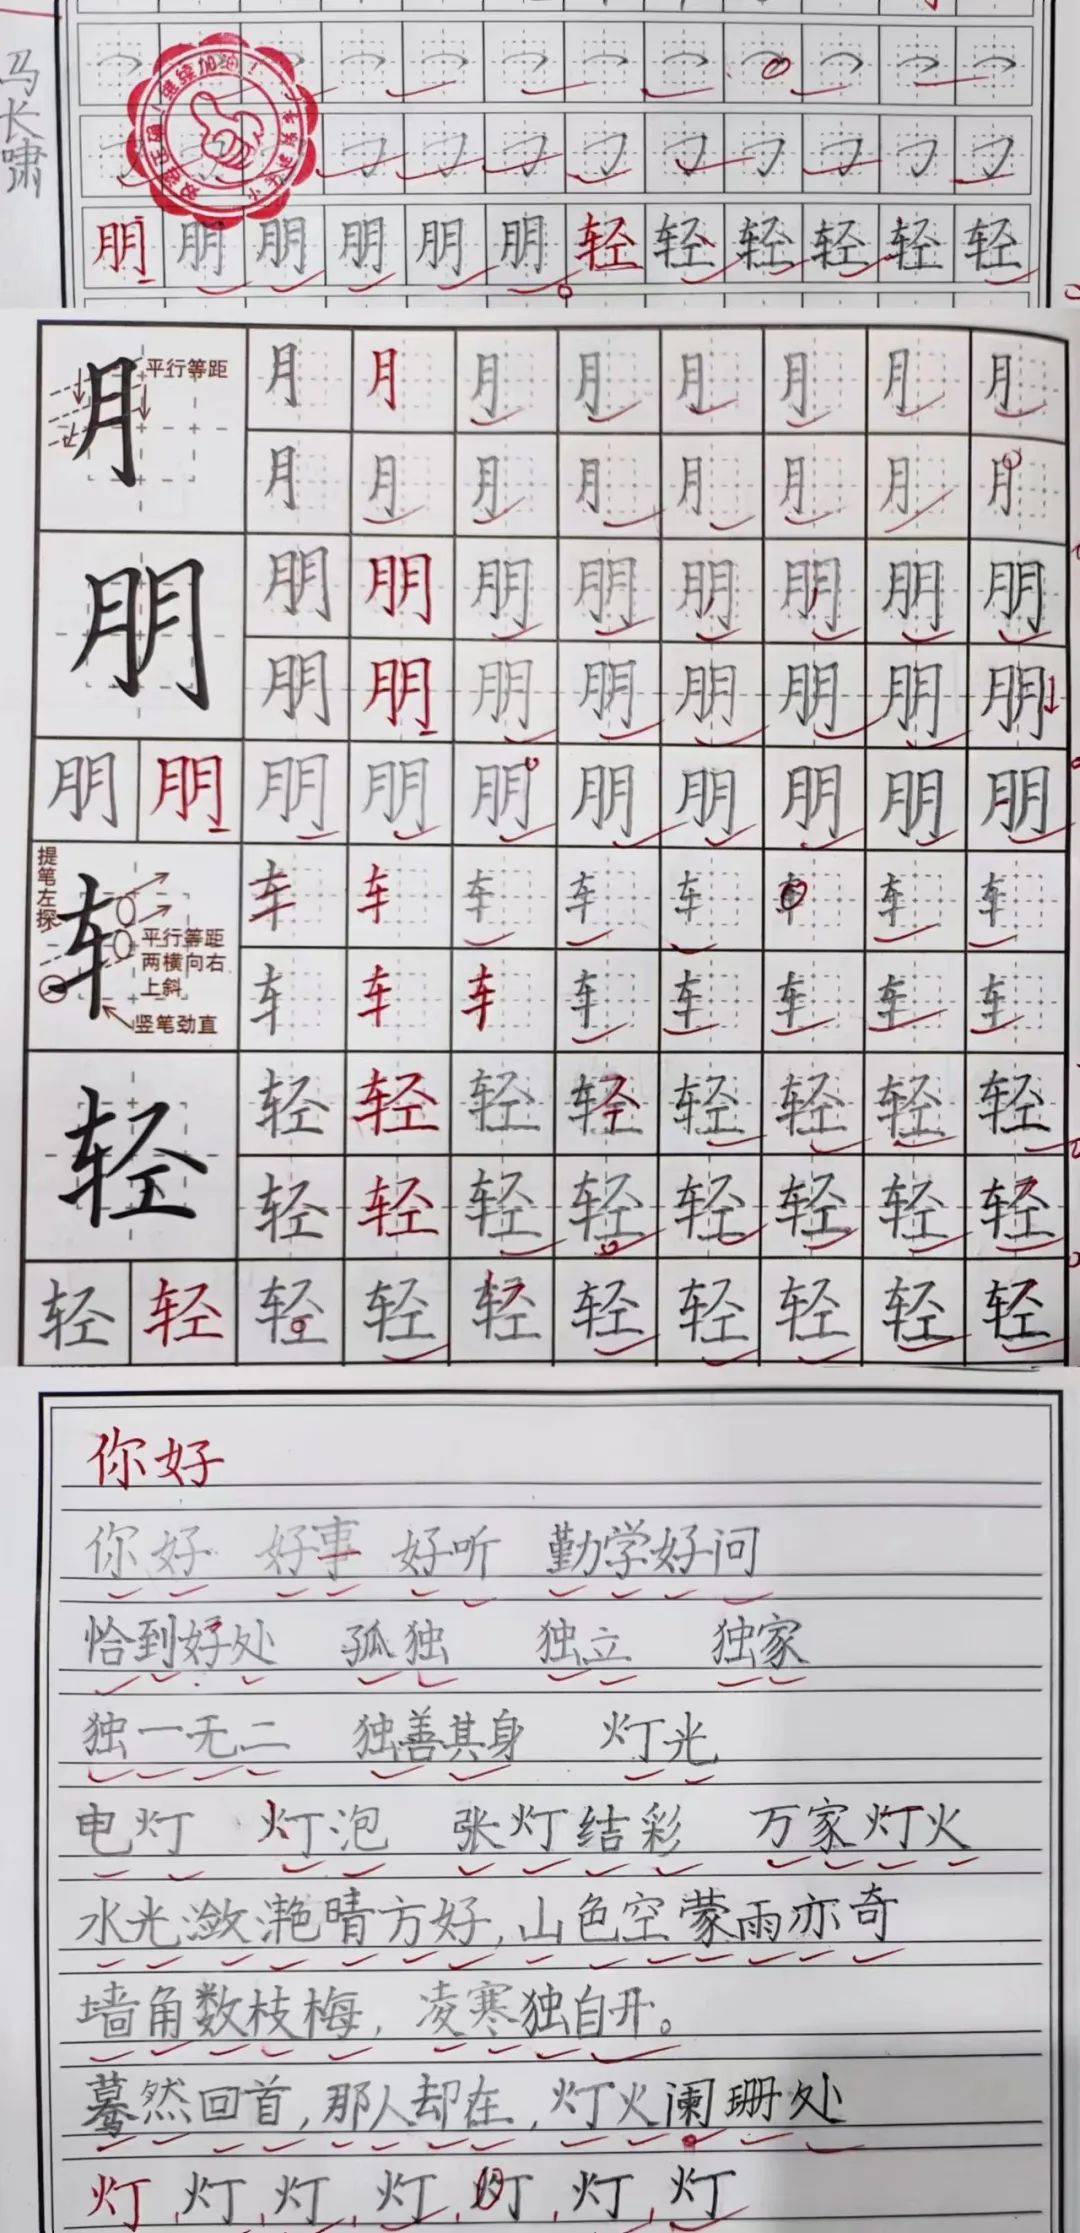 马长啸
继续加油！
朋朋朋朋朋朋轻轻轻轻轻轻
平行等距
月月月月月月月月月
月月月月月月月月
朋朋朋朋朋朋朋朋朋
朋朋朋朋朋朋朋朋
朋朋朋朋朋朋朋朋朋朋
提笔左探
平行等距
两横向右
上斜
竖笔劲直
车车车车车车车车车
车车车车车车车车
轻轻轻轻轻轻轻轻轻
轻轻轻轻轻轻轻轻
轻轻轻轻轻轻轻轻轻轻
你好
你好 好事 好听 勤学好问
恰到好处 孤独 独立 独家
独一无二 独善其身 灯光
电灯 灯泡 张灯结彩 万家灯火
水光潋滟晴方好,山色空蒙雨亦奇
墙角数枝梅,凌寒独自开。
蓦然回首,那人却在,灯火阑珊处
灯灯灯灯灯灯灯